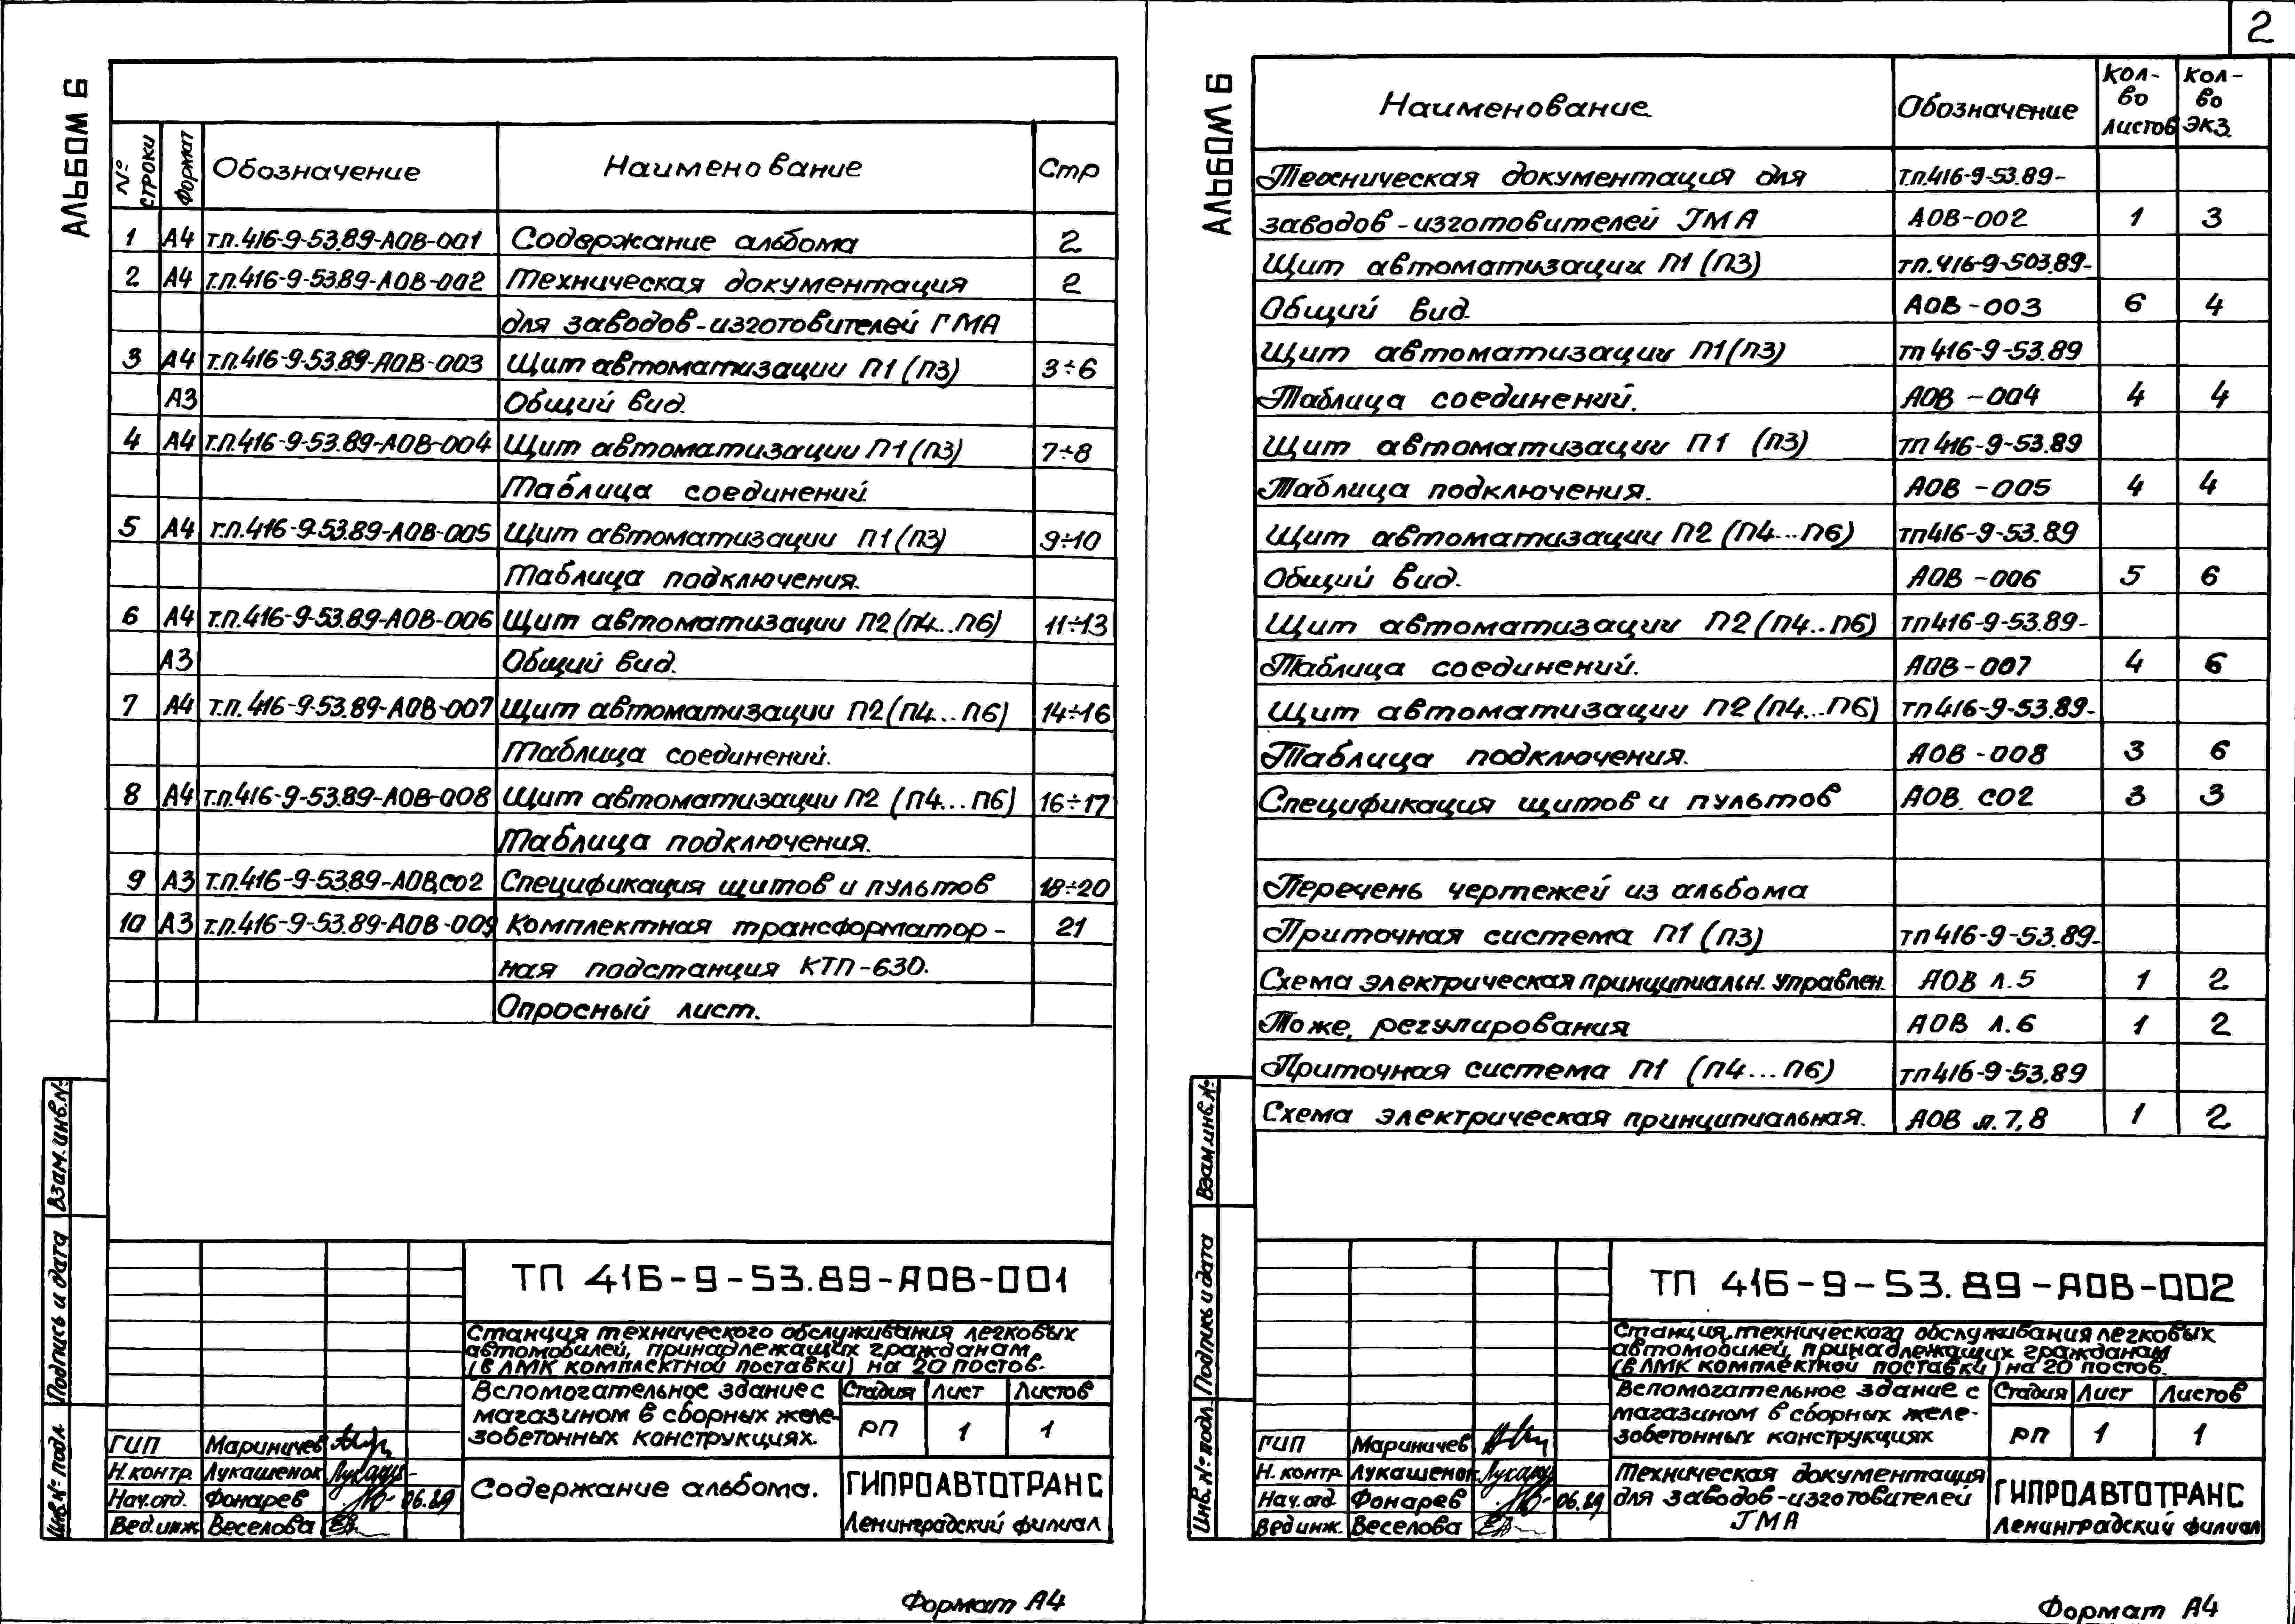 2
АЛЬБОМ 6
№ строки Формат Обозначение Наименование Стр
1 А4 т.п.416-9-53.89-АОВ-001 Содержание альбома 2
2 А4 т.п.416-9-53.89-АОВ-002 Техническая документация 2
для заводов-изготовителей ГМА
3 А4 т.п.416-9-53.89-АОВ-003 Щит автоматизации П1(П3) 3÷6
А3 Общий вид.
4 А4 т.п.416-9-53.89-АОВ-004 Щит автоматизации П1(П3) 7÷8
Таблица соединений
5 А4 т.п.416-9-53.89-АОВ-005 Щит автоматизации П1(П3) 9÷10
Таблица подключения.
6 А4 т.п.416-9-53.89-АОВ-006 Щит автоматизации П2(П4..П6) 11÷13
А3 Общий вид.
7 А4 т.п.416-9-53.89-АОВ-007 Щит автоматизации П2(П4...П6) 14÷16
Таблица соединений.
8 А4 т.п.416-9-53.89-АОВ-008 Щит автоматизации П2 (П4...П6) 16÷17
Таблица подключения.
9 А3 т.п.416-9-53.89-АОВ.СО2 Спецификация щитов и пультов 18÷20
10 А3 т.п.416-9-53.89-АОВ-009 Комплектная трансформатор- 21
ная подстанция КТП-630.
Опросный лист.
Взам.инв.№
Подпись и дата
Инв.№ подл
ТП 416-9-53.89-АОВ-001
Станция технического обслуживания легковых
автомобилей, принадлежащих гражданам
(в ЛМК комплектной поставки) на 20 постов.
Вспомогательное здание с
магазином в сборных желе-
зобетонных конструкциях.
Стадия Лист Листов
РП 1 1
ГИП Мариничев
Н.контр. Лукашенок
Нач.отд. Фонарев 06.89
Вед.инж. Веселова
Содержание альбома.
ГИПРОАВТОТРАНС
Ленинградский филиал
Формат А4
АЛЬБОМ 6
Наименование Обозначение Кол-во листов Кол-во экз.
Техническая документация для т.п.416-9-53.89-
заводов-изготовителей ГМА АОВ-002 1 3
Щит автоматизации П1(П3) тп.416-9-503.89-
Общий вид. АОВ-003 6 4
Щит автоматизации П1(П3) тп 416-9-53.89
Таблица соединений. АОВ-004 4 4
Щит автоматизации П1 (П3) тп 416-9-53.89
Таблица подключения. АОВ-005 4 4
Щит автоматизации П2 (П4...П6) тп416-9-53.89
Общий вид. АОВ-006 5 6
Щит автоматизации П2(П4..П6) тп416-9-53.89-
Таблица соединений. АОВ-007 4 6
Щит автоматизации П2(П4...П6) тп416-9-53.89-
Таблица подключения. АОВ-008 3 6
Спецификация щитов и пультов АОВ. СО2 3 3
Перечень чертежей из альбома
Приточная система П1(П3) тп 416-9-53.89-
Схема электрическая принципиальн. управлен. АОВ л.5 1 2
Тоже, регулирования АОВ л.6 1 2
Приточная система П1 (П4...П6) тп416-9-53.89
Схема электрическая принципиальная. АОВ л.7,8 1 2
Взам.инв.№
Подпись и дата
Инв.№ подл.
ТП 416-9-53.89-АОВ-002
Станция технического обслуживания легковых
автомобилей, принадлежащих гражданам
(в ЛМК комплектной поставки) на 20 постов.
Вспомогательное здание с
магазином в сборных желе-
зобетонных конструкциях
Стадия Лист Листов
РП 1 1
ГИП Мариничев
Н. контр Лукашенок
Нач.отд Фонарев 06.89
Вед инж. Веселова
Техническая документация
для заводов-изготовителей
ГМА
ГИПРОАВТОТРАНС
Ленинградский филиал
Формат А4